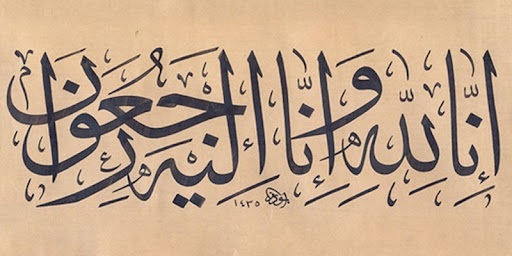 إنّا للّه وإنّا إليه راجعون
١٤٣٥